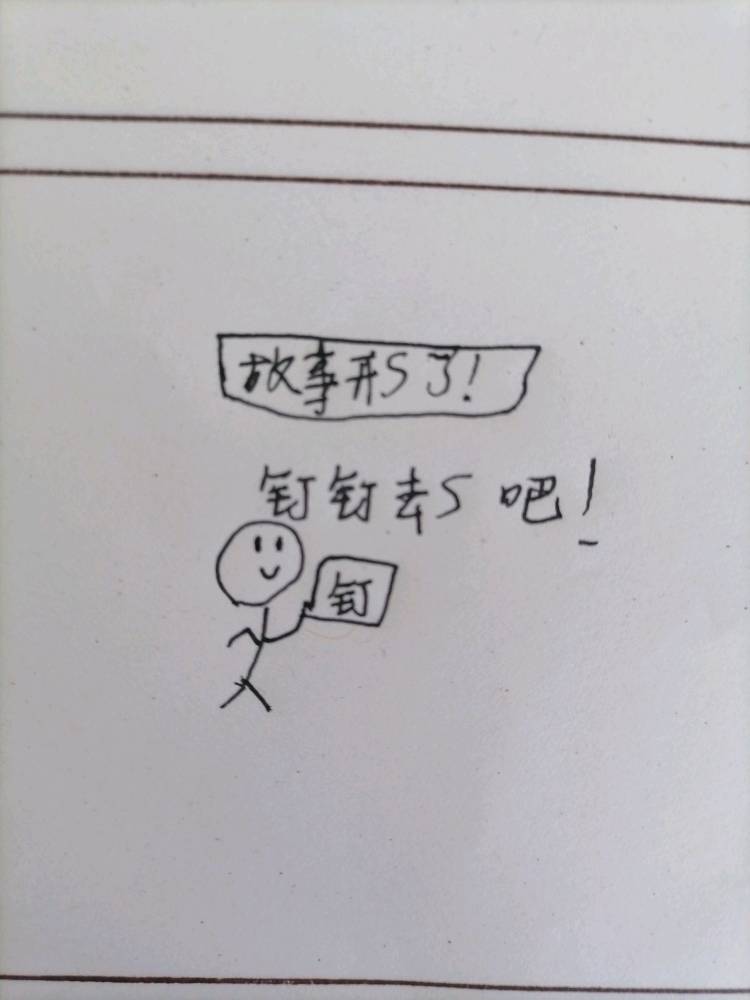 故事开S了！
钉钉去S吧！
钉